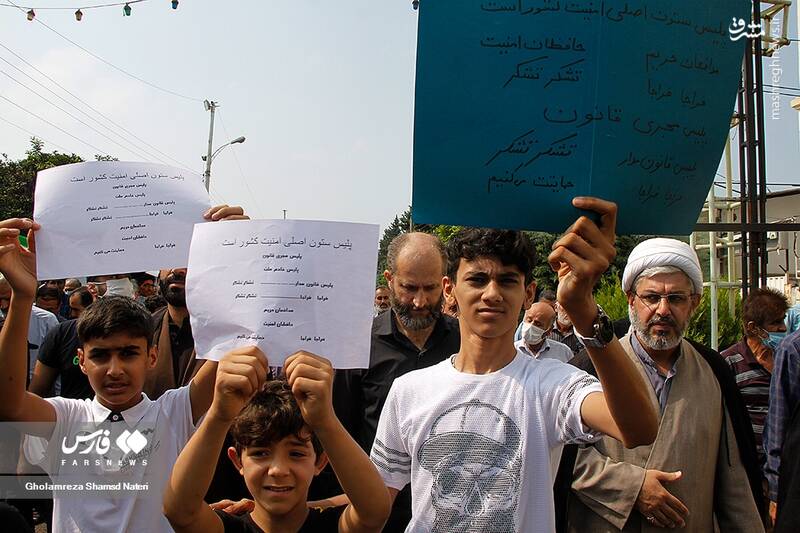 پلیس ستون اصلی امنیت کشور است
حافظان امنیت
مدافعان حریم
تشکر تشکر
فراجا فراجا
پلیس مجری قانون
تشکر تشکر
پلیس قانون مدار
حمایتت می‌کنیم
فراجا فراجا
پلیس ستون اصلی امنیت کشور است
پلیس مجری قانون
پلیس خادم ملت
پلیس قانون مدار
فراجا فراجا تشکر تشکر
مدافعان حریم
حافظان امنیت
حمایتت می کنیم
پلیس ستون اصلی امنیت کشور است
پلیس مجری قانون
پلیس خادم ملت
پلیس قانون مدار
فراجا فراجا تشکر تشکر
مدافعان حریم
حافظان امنیت
فراجا فراجا تشکر تشکر
حمایتت می کنیم
مشرق
mashreghnews.ir
فارس
FARSNEWS
Gholamreza Shamsd Nateri